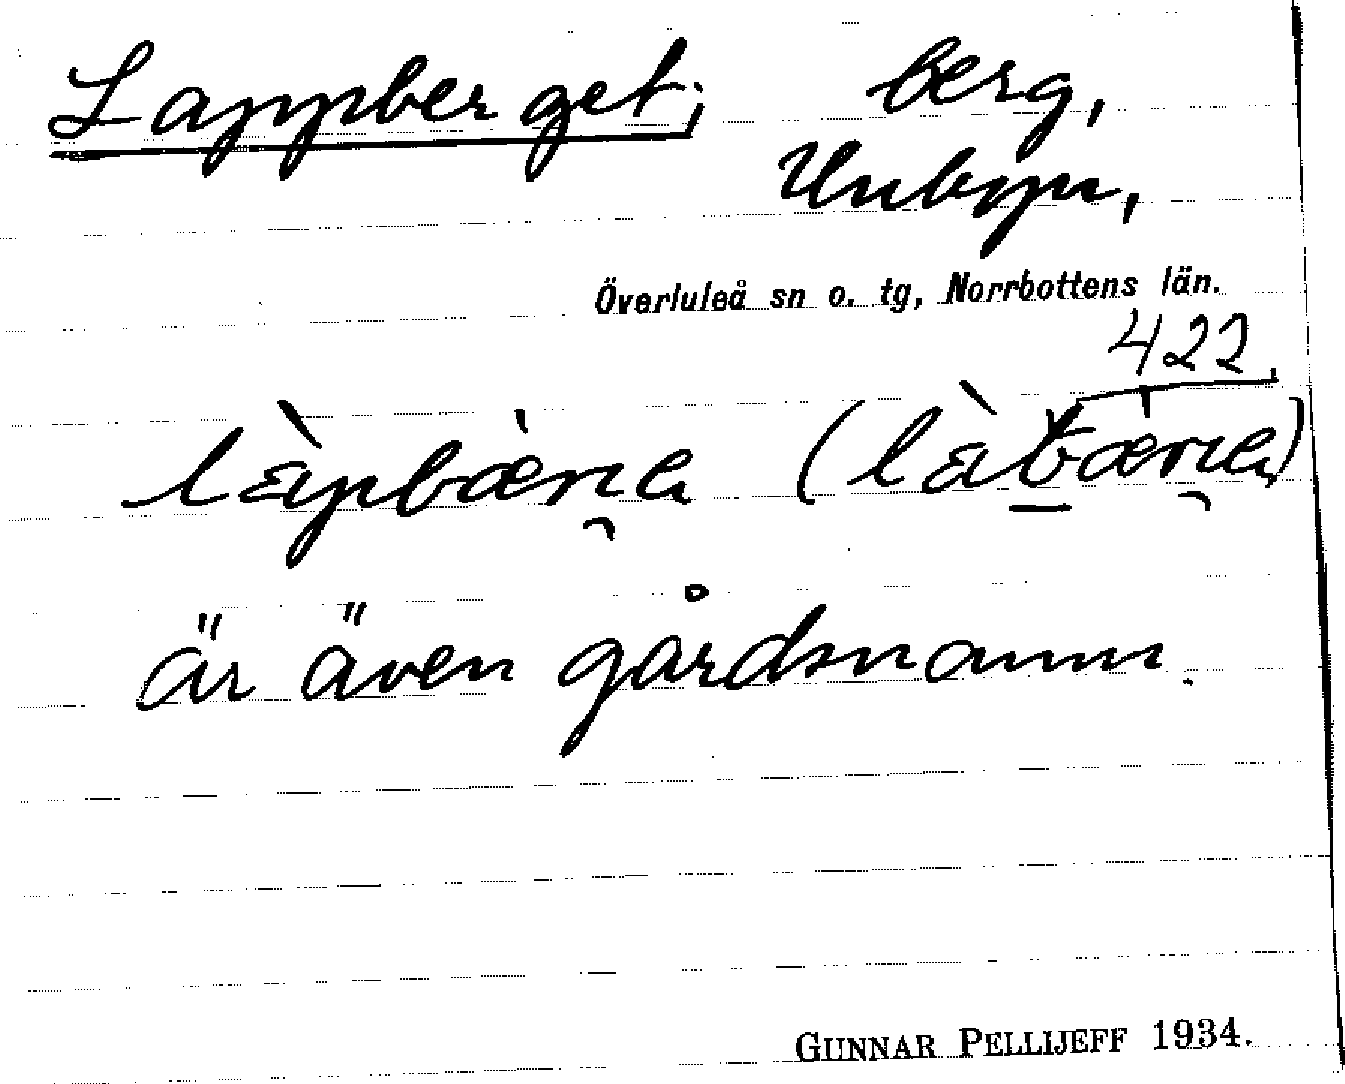 Lappberget; berg,
Unbyn,
Överluleå sn o. tg, Norrbottens län.
422.
är även gårdsnamn.
GUNNAR PELLIJEFF 1934.